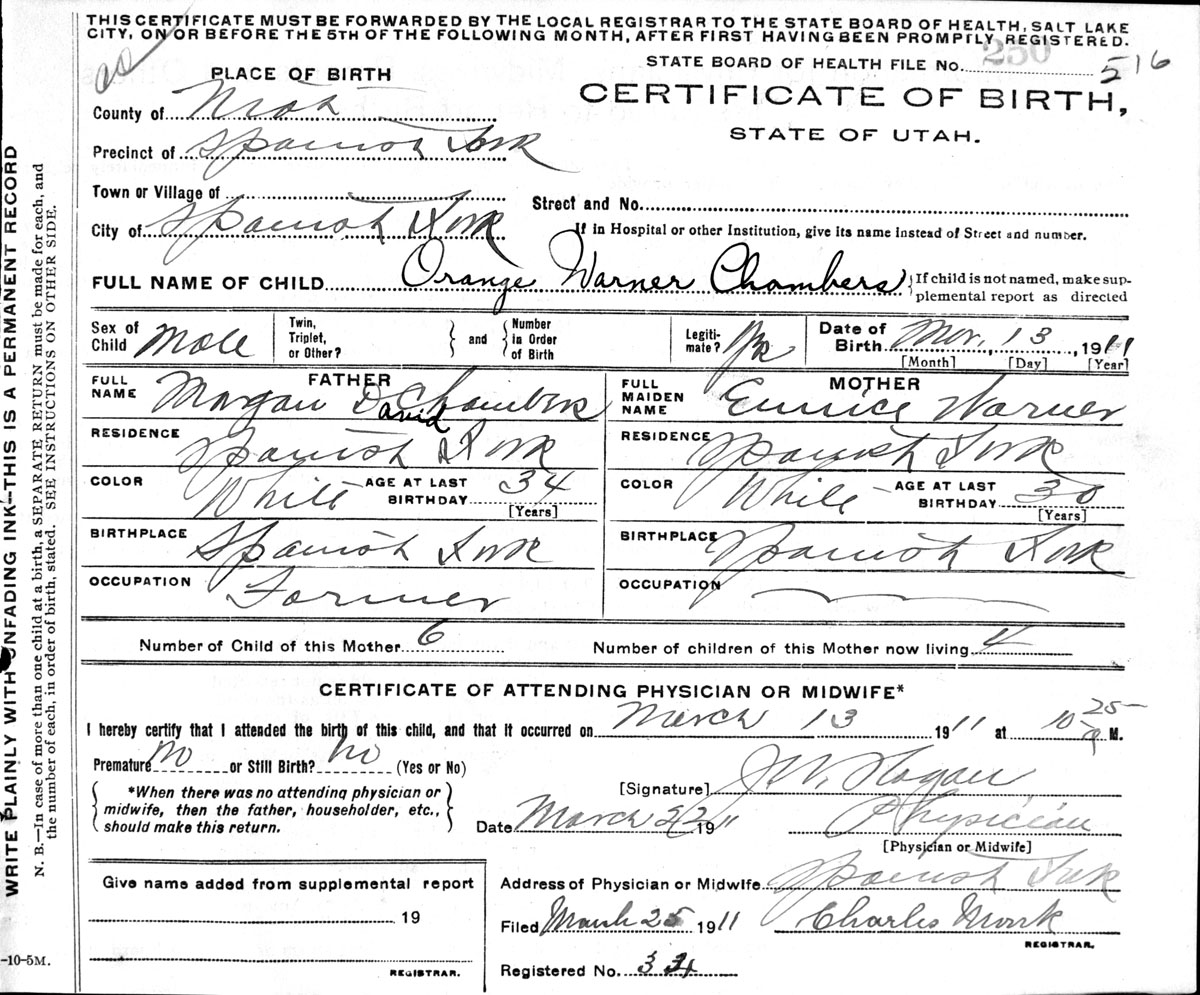 THIS CERTIFICATE MUST BE FORWARDED BY THE LOCAL REGISTRAR TO THE STATE BOARD OF HEALTH, SALT LAKE
CITY, ON OR BEFORE THE 5TH OF THE FOLLOWING MONTH, AFTER FIRST HAVING BEEN PROMPTLY REGISTERED.
STATE BOARD OF HEALTH FILE NO. 250 516
PLACE OF BIRTH
CERTIFICATE OF BIRTH,
STATE OF UTAH.
County of Utah
Precinct of Spanish Fork
Town or Village of
Street and No.
City of Spanish Fork
If in Hospital or other Institution, give its name instead of Street and number.
FULL NAME OF CHILD Orange Warner Chambers
If child is not named, make sup-
plemental report as directed
Sex of Child Male
Twin, Triplet, or Other?
and
Number in Order of Birth
Legiti-mate?
Date of Birth Mar. 13, 1911
[Month] [Day] [Year]
FATHER
FULL NAME Morgan David Chambers
RESIDENCE Spanish Fork
COLOR White AGE AT LAST BIRTHDAY 34
[Years]
BIRTHPLACE Spanish Fork
OCCUPATION Farmer
MOTHER
FULL MAIDEN NAME Eunice Warner
RESIDENCE Spanish Fork
COLOR White AGE AT LAST BIRTHDAY 30
[Years]
BIRTHPLACE Spanish Fork
OCCUPATION
Number of Child of this Mother 6 Number of children of this Mother now living 4
CERTIFICATE OF ATTENDING PHYSICIAN OR MIDWIFE*
I hereby certify that I attended the birth of this child, and that it occurred on March 13 1911 at 10 25 M.
Premature No or Still Birth? No (Yes or No)
*When there was no attending physician or
midwife, then the father, householder, etc.,
should make this return.
[Signature] J W Hagan
Date March 22 1911 Physician
[Physician or Midwife]
Give name added from supplemental report
19
REGISTRAR.
Address of Physician or Midwife Spanish Fork
Filed March 25 1911 Charles Monk
REGISTRAR.
Registered No. 34
-10-5M.
WRITE PLAINLY WITH UNFADING INK—THIS IS A PERMANENT RECORD
N. B.—In case of more than one child at a birth, a SEPARATE RETURN must be made for each, and
the number of each, in order of birth, stated. SEE INSTRUCTIONS ON OTHER SIDE.